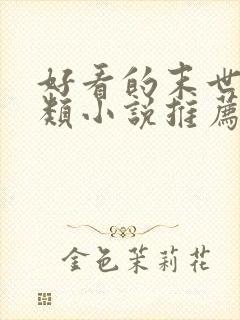 好看的末世
類小說推薦
金色茉莉花